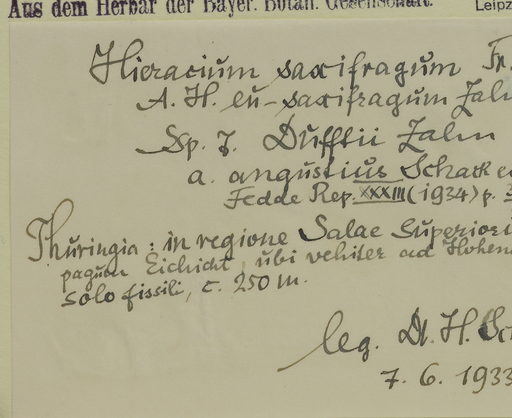 Aus dem Herbar der Bayer. Botan. Gesellschaft.
Leipz
Hieracium saxifragum Fr.
A. H. eu-saxifragum Zahn
Sp. 7. Dufftii Zahn
a. angustius Schack e
Fedde Rep. XXXIII (1934) p.
Thuringia: in regione Salae superiori
pagum Eichicht, ubi vehiter ad Hohen
solo fissili, c. 250 m.
leg. Dr. H. Sc
7. 6. 1933